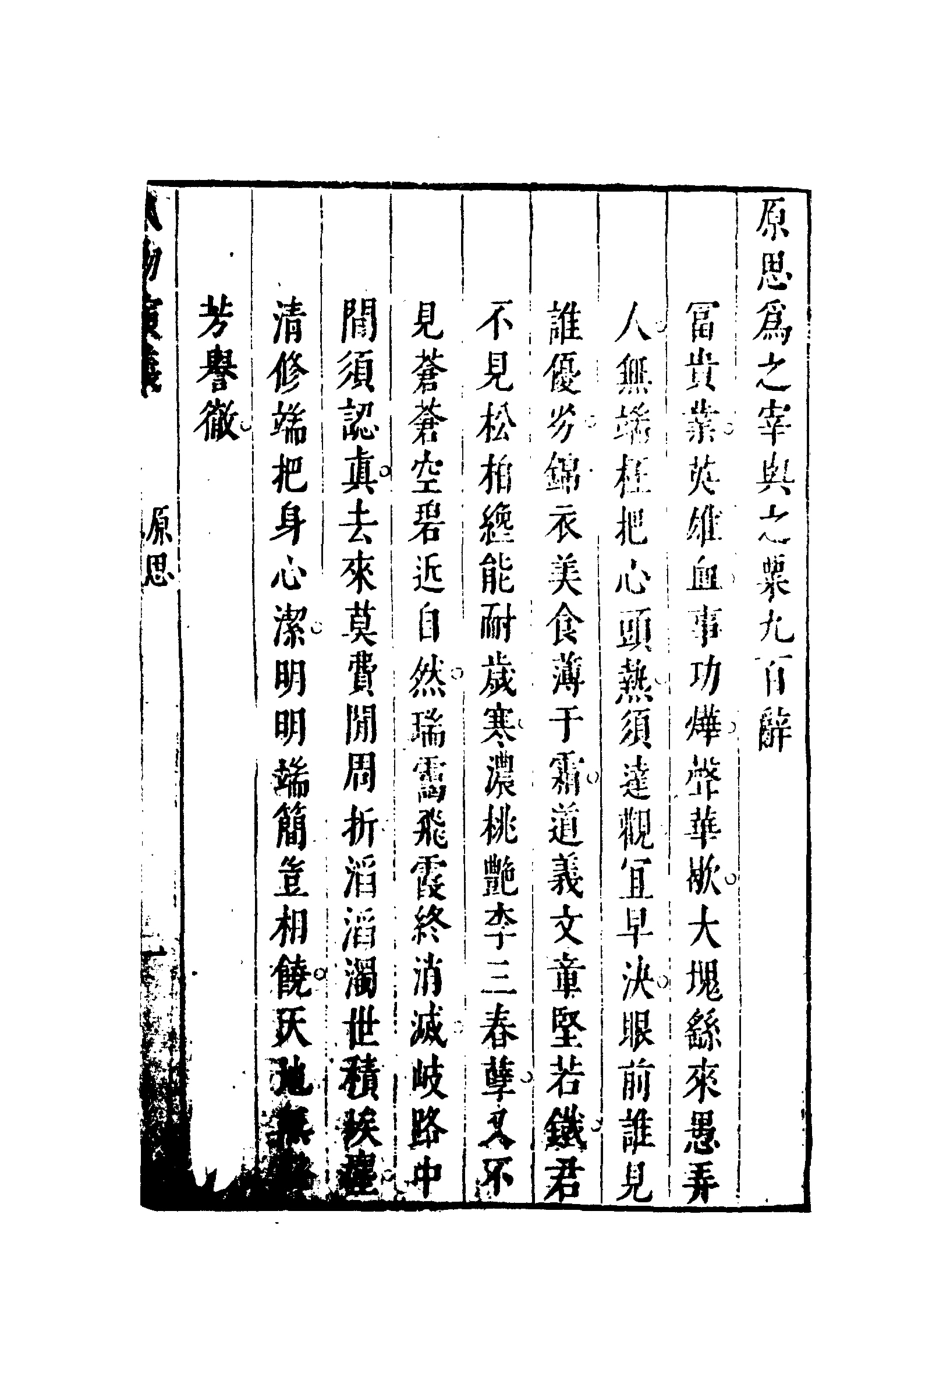 原思爲之宰與之粟九百辭
冨貴業英雄血事功燁聲華歇大塊繇來愚弄
人無端枉把心頭熱須達觀宜早決眼前誰見
誰優劣錦衣美食薄于霜道義文章堅若鐵君
不見松柏纔能耐歲寒濃桃艷李三春孽又不
見蒼蒼空碧近自然瑞靄飛霞終消滅岐路中
間須認真去來莫費閒周折滔滔濁世積埃塵
清修端把身心潔明明端簡豈相饒天地無
芳譽徹
原思